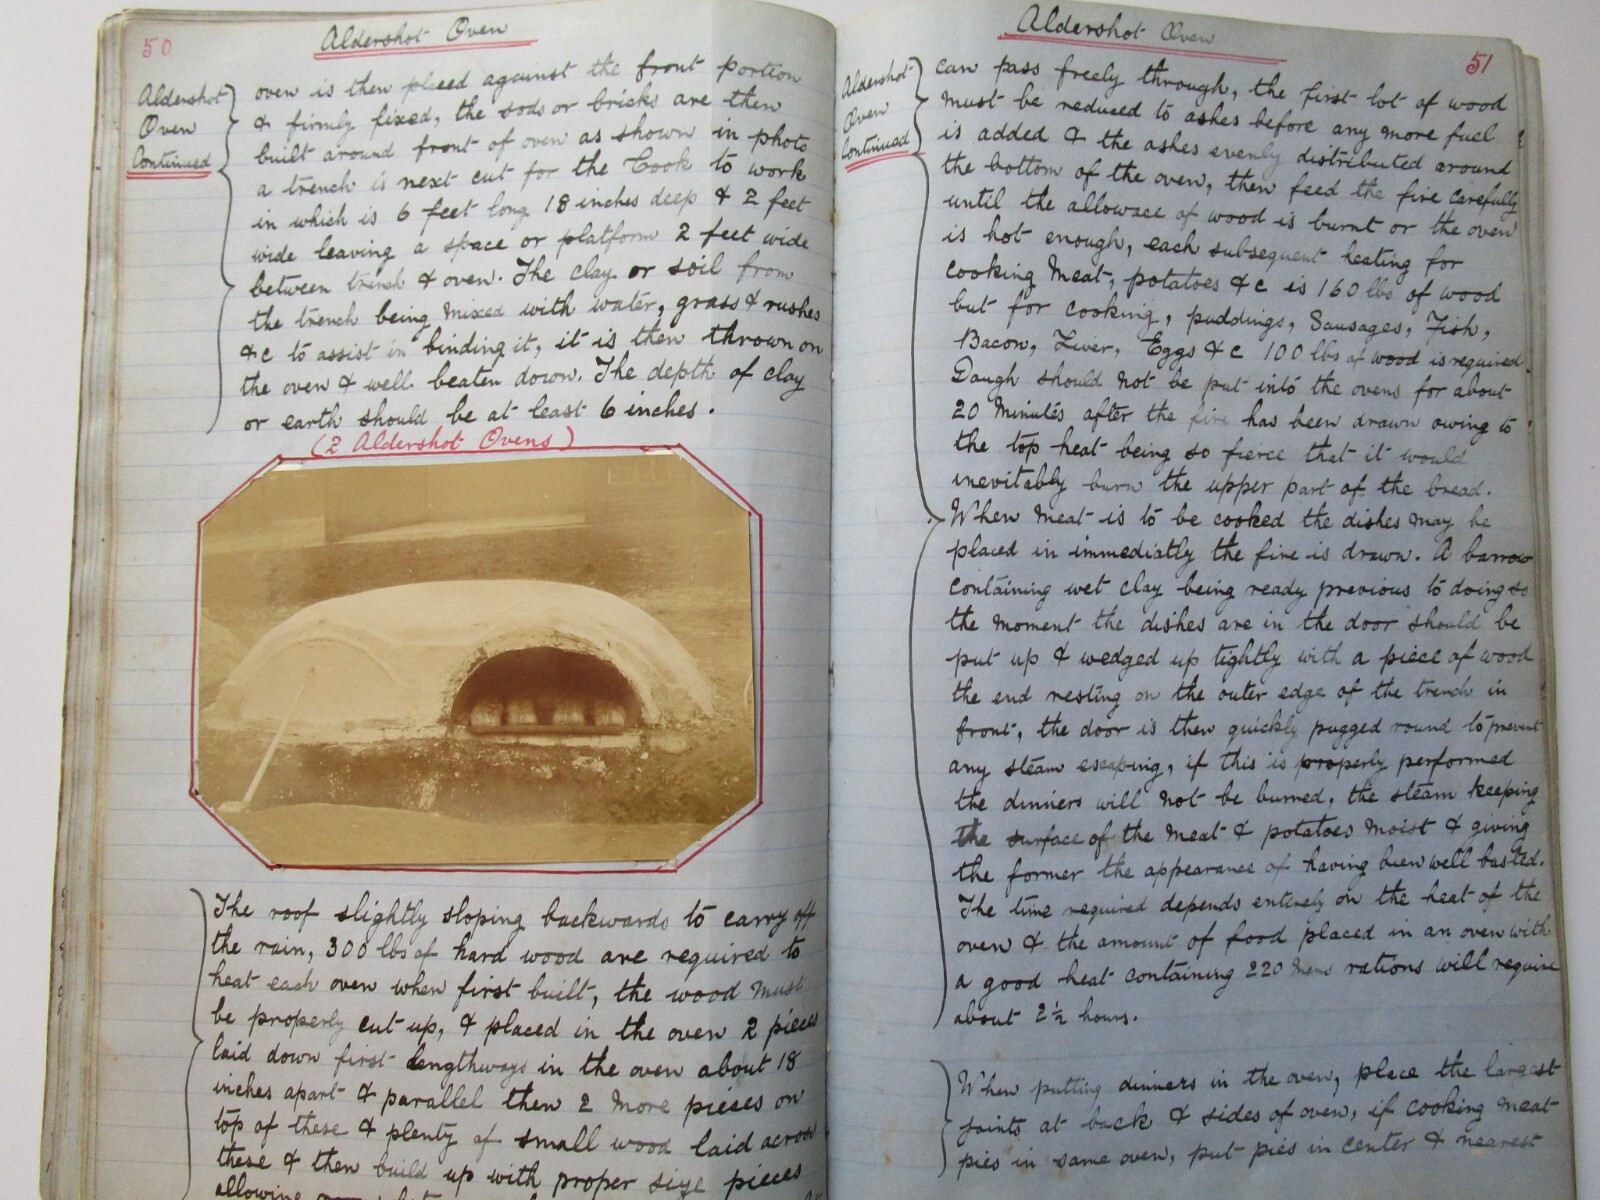 50
Aldershot Oven
Aldershot
Oven
Continued
oven is then placed against the front portion
& firmly fixed, the sods or bricks are then
built around front of oven as shown in photo
a trench is next cut for the Cook to work
in which is 6 feet long 18 inches deep & 2 feet
wide leaving a space or platform 2 feet wide
between trench & oven. The clay or soil from
the trench being mixed with water, grass & rushes
&c to assist in binding it, it is then thrown on
the oven & well beaten down. The depth of clay
or earth should be at least 6 inches.
(2 Aldershot Ovens)
The roof slightly sloping backwards to carry off
the rain, 300 lbs of hard wood are required to
heat each oven when first built, the wood must
be properly cut up, & placed in the oven 2 pieces
laid down first lengthways in the oven about 18
inches apart & parallel then 2 more pieces on
top of these & plenty of small wood laid across
these & then build up with proper size pieces
allowing
Aldershot Oven
51
Aldershot
Oven
Continued
can pass freely through, the first lot of wood
must be reduced to ashes before any more fuel
is added & the ashes evenly distributed around
the bottom of the oven, then feed the fire carefully
until the allowace of wood is burnt or the oven
is hot enough, each subsequent heating for
cooking Meat, potatoes &c is 160 lbs of wood
but for cooking, puddings, Sausages, Fish,
Bacon, Liver, Eggs &c 100 lbs of wood is required
Daugh should not be put into the ovens for about
20 Minutes after the fire has been drawn owing to
the top heat being so fierce that it would
inevitably burn the upper part of the bread.
When meat is to be cooked the dishes may be
placed in immediatly the fire is drawn. A barrow
containing wet clay being ready previous to doing so
the moment the dishes are in the door should be
put up & wedged up tightly with a piece of wood
the end resting on the outer edge of the trench in
front, the door is then quickly pugged round to prevent
any steam escaping, if this is properly performed
the dinners will not be burned, the steam keeping
the surface of the meat & potatoes moist & giving
the former the appearance of having been well basted.
The time required depends entirely on the heat of the
oven & the amount of food placed in an oven with
a good heat containing 220 Mens rations will require
about 2½ hours.
When putting dinners in the oven, place the largest
joints at back & sides of oven, if cooking meat
pies in same oven, put pies in center & nearest